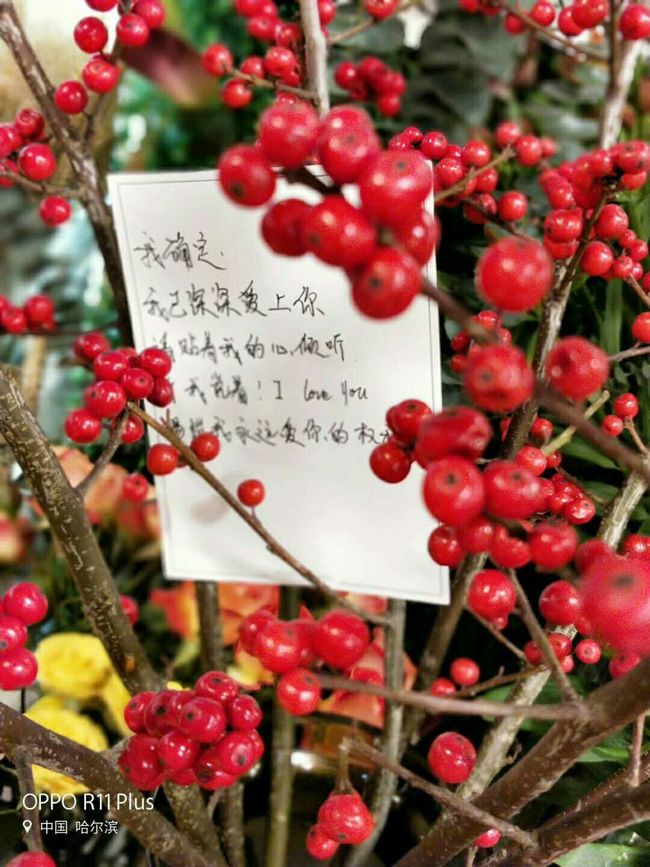 我确定.
我已深深爱上你
贴着我的心,倾听
我说着!I love You
我永远爱你的权
OPPO R11 Plus
中国 哈尔滨